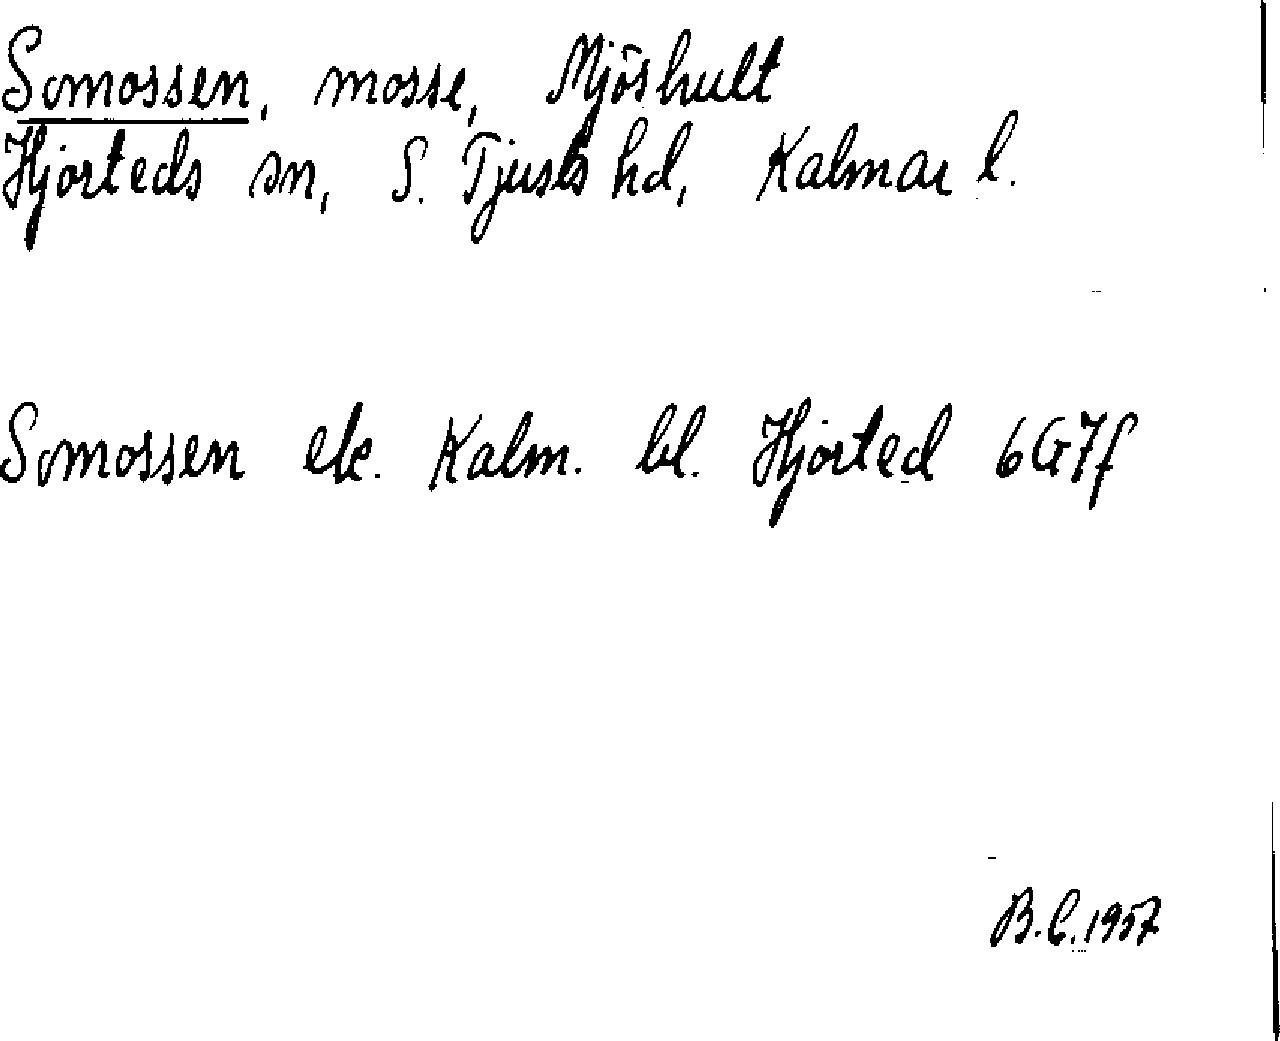 Somossen, mosse, Mjöshult
Hjorteds sn, S. Tjusts hd, Kalmar l.
Somossen ek. Kalm. bl. Hjorted 6G7f
B.C. 1957